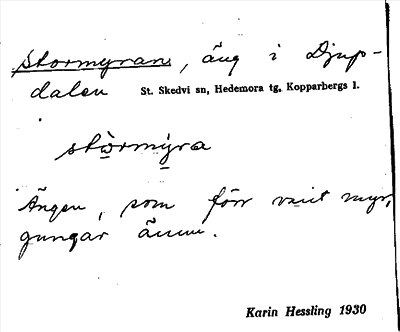 Stormyran, äng i Djup-
dalen St. Skedvi sn, Hedemora tg, Kopparbergs l.
stòrmýra
Ängen, som förr varit myr,
gungar ännu.
Karin Hessling 1930